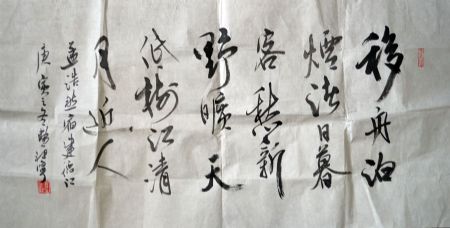 移舟泊
烟渚日暮
客愁新
野旷天
低樹江清
月近人
孟浩然宿建德江
庚寅之冬